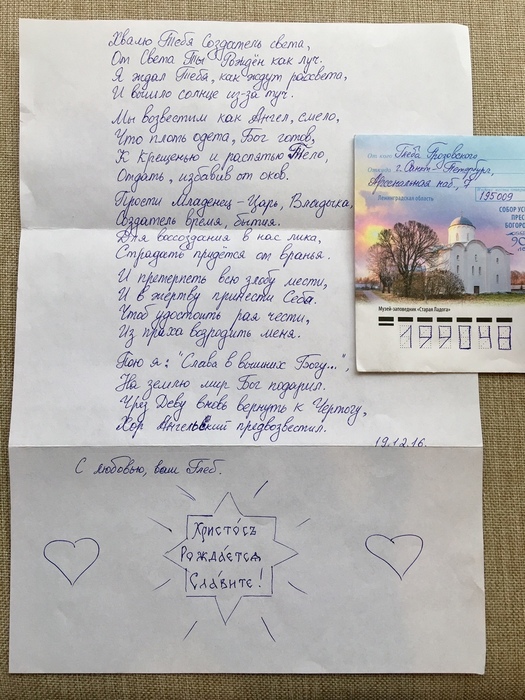 Хвалю Тебя Создатель света,
От Света Ты Рождён как луч.
Я ждал Тебя, как ждут рассвета,
И вышло солнце из-за туч.
Мы возвестим как Ангел, смело,
Что плоть одета, Бог готов,
К Крещенью и распятью Тело,
Отдать, избавив от оков.
Прости Младенец-Царь, Владыка,
Создатель время, бытия.
Для воссоздания в нас лика,
Страдать придется от вранья.
И претерпеть всю злобу мести,
И в жертву принести Себя.
Чтоб удостоить рая чести,
Из праха возродить меня.
Пою я: "Слава в вышних Богу...",
На землю мир Бог подарил.
Чрез Деву вновь вернуть к Чертогу,
Хор Ангельский предвозвестил.
19.12.16.
С любовью, ваш Глеб.
Христо́съ
Рожда́ется
Сла́вите!
От кого Глеба Грозовского
Откуда г. Санкт-Петербург,
Арсенальная наб., 7
195009
Ленинградская область
СОБОР УС
ПРЕС
БОГОРО
Музей-заповедник «Старая Ладога»
199048